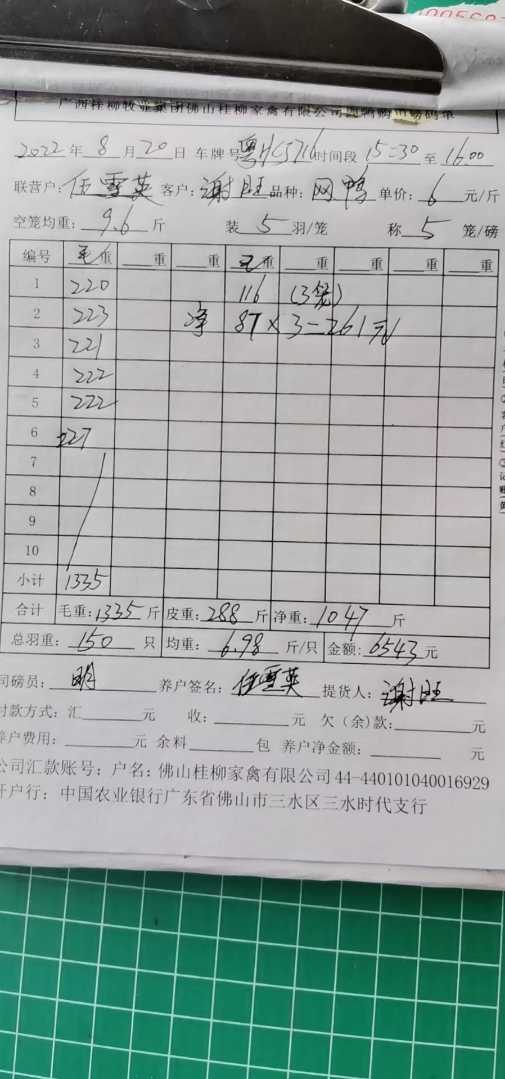 广西桂柳牧业集团佛山桂柳家禽有限公司 磅码单
2022年8月20日 车牌号 粤HCJ716 时间段 15:30至16:00
联营户:任雪英 客户:谢旺 品种:网鸭 单价:6元/斤
空笼均重:9.6斤 装5羽/笼 称5笼/磅
编号 毛重 重 重 毛重 重 重 重
1 220 116 (3笼)
2 223 净 87×3=261元
3 221
4 222
5 222
6 227
7
8
9
10
小计 1335
合计 毛重:1335斤 皮重:288斤 净重:1047斤
总羽重:150只 均重:6.98斤/只 金额:6543元
司磅员:明 养户签名:任雪英 提货人:谢旺
付款方式:汇 元 收: 元 欠(余)款: 元
养户费用: 元 余料 包 养户净金额: 元
公司汇款账号:户名:佛山桂柳家禽有限公司 44-440101040016929
开户行:中国农业银行广东省佛山市三水区三水时代支行